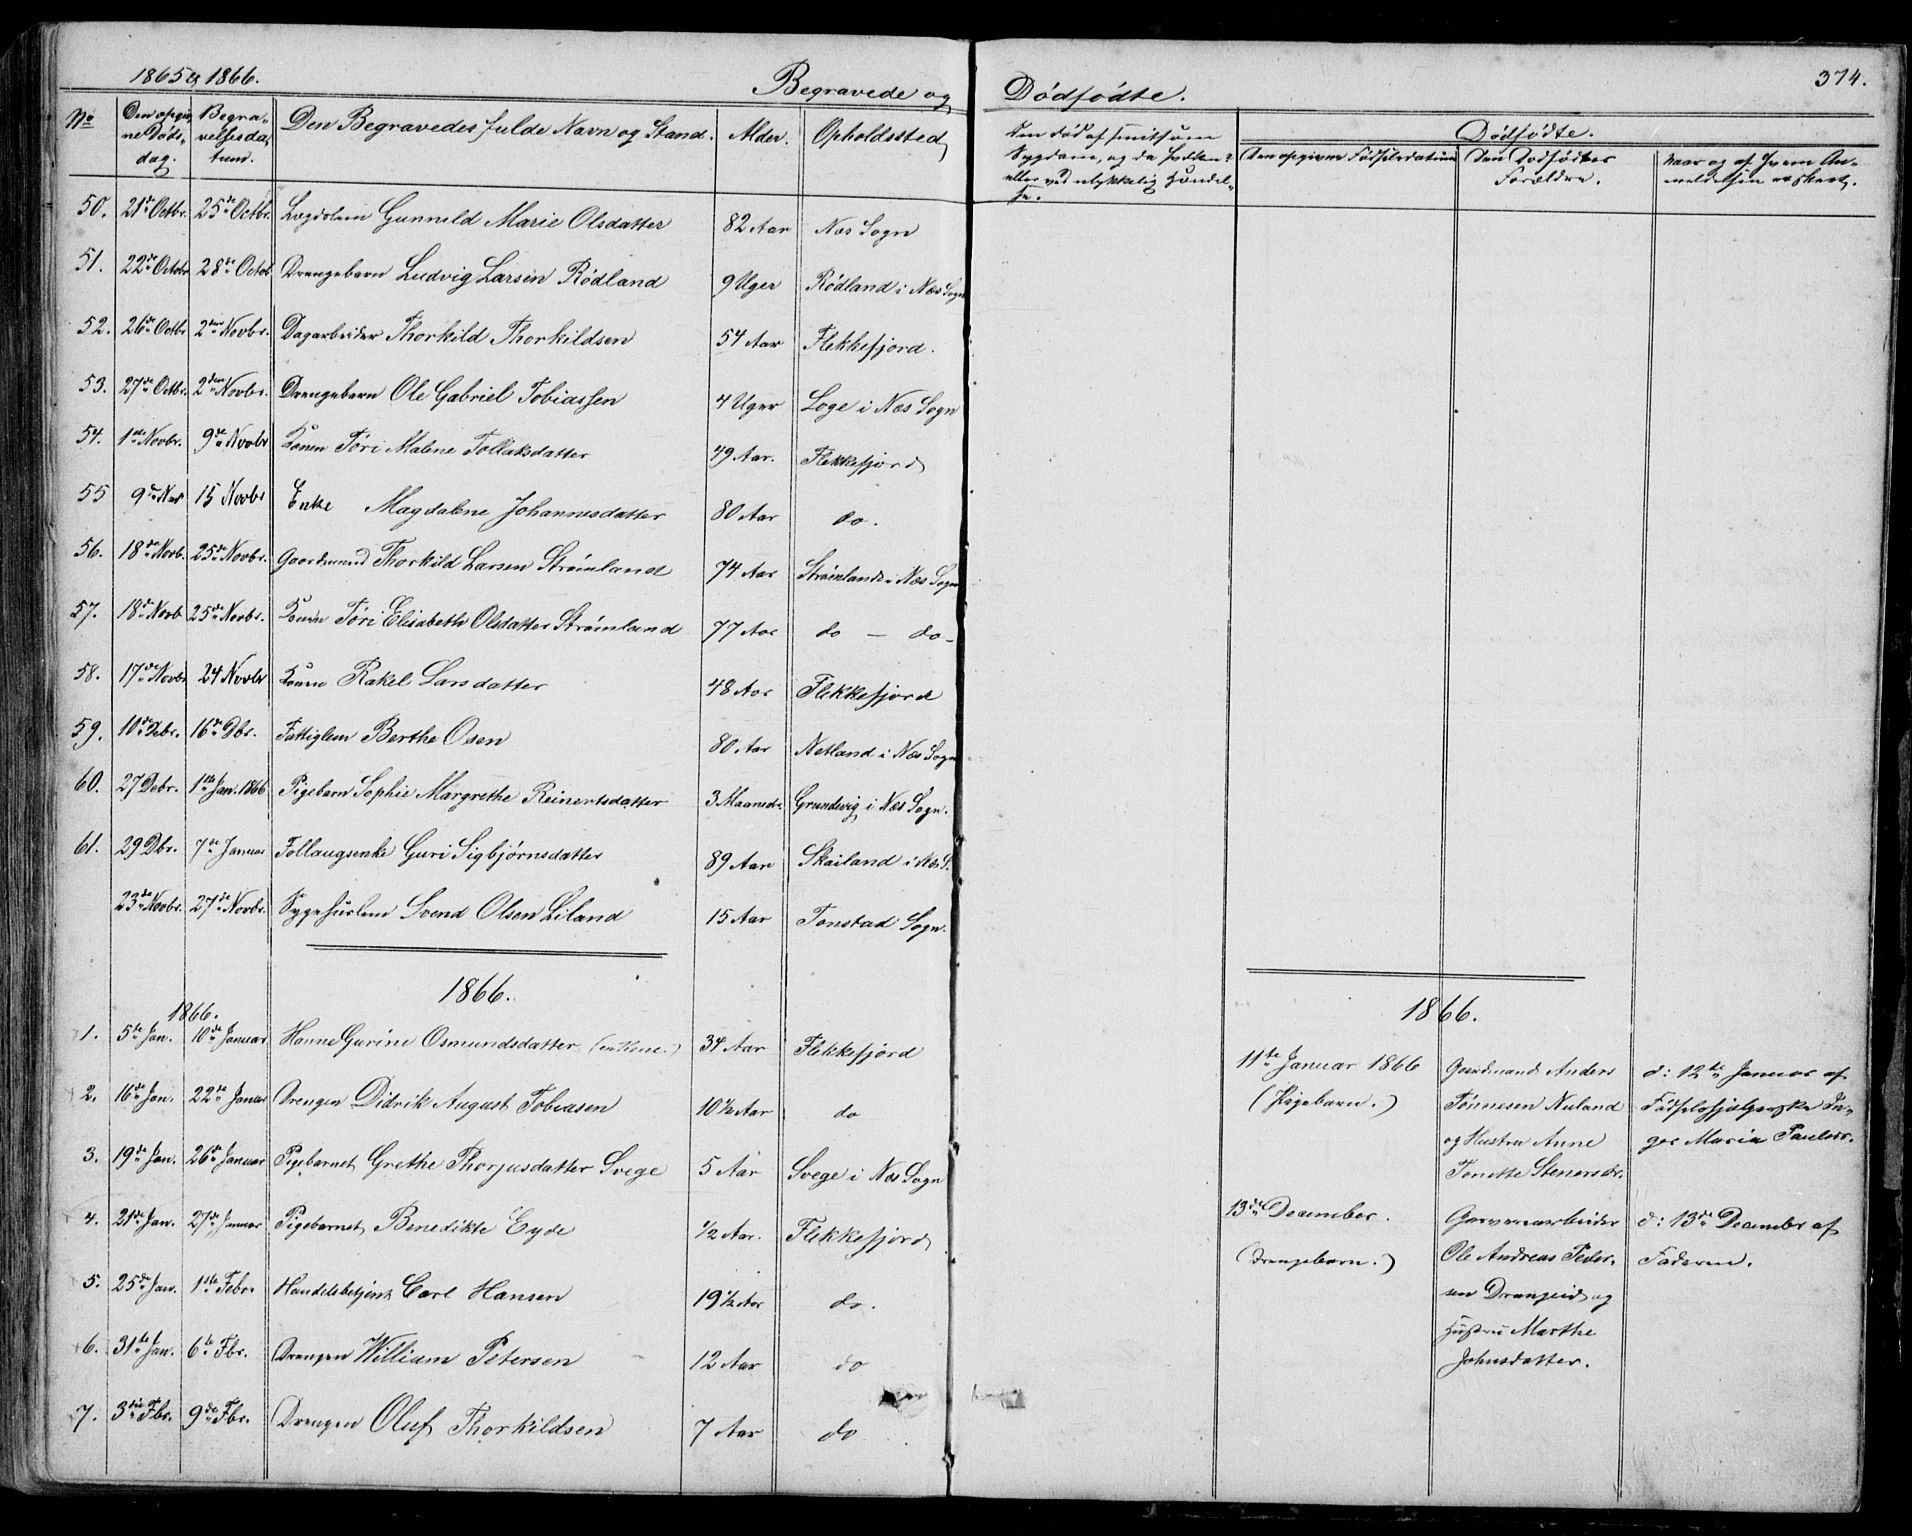 1865 & 1866. Begravede og Dødfødte. 374.
No Den opgivne Døds-dag. Begravelsesdatum. Den Begravedes fulde Navn og Stand. Alder. Opholdssted
Om død af smitsom Sygdom, og da hvilken? eller ved ulykkelig Hændelse.
Dødfødte.
Den opgivne Fødselsdatum Den Dødfødtes Forældre. Naar og af hvem Anmeldelsen er skeet.
50. 21de Octbr. 25de Octbr. Lægdslem Gunneld Marie Olsdatter 82 Aar Næs Sogn
51. 22de Octbr 28de Octob Drengebarn Ludvig Larsen Rødland 9 Uger Rødland i Næs Sogn
52. 26de Octbr 2den Novbr. Dagarbeider Thorkild Thorkildsen 54 Aar Flekkefjord.
53. 27de Octbr. 2den Novbr. Drengebarn Ole Gabriel Tobiassen 4 Uger Loge i Næs Sogn
54. 1ste Novbr. 9de Novbr Konen Tøri Malene Tollaksdatter 49 Aar. Flekkefjord
55 9de Nov 15 Novbr Enke Magdalene Johannesdatter 80 Aar do.
56. 18de Novb. 25de Novbr. Gaardmand Thorkild Larsen Strømland 74 Aar Strømland i Næs Sogn
57. 18de Novb 25de Novbr. Konen Tøri Elisabeth Olsdatter Strømland 77 Aar do – do –
58. 17de Novbr 24 Novbr Konen Rakel Larsdatter 48 Aar Flekkefjord
59. 10de Debr. 16de Dbr. Fattiglem Berthe Osen 80 Aar Netland i Næs Sogn
60. 27 Debr. 1ste Jan. 1866 Pigebarn Sophie Margrethe Reinertsdatter 3 Maaneder Grundevig i Næs Sogn.
61. 29 Dbr. 7de Januar Follaugsenke Guri Sigbjørnsdatter 89 Aar Skailand i Næs S.
23de Novbr. 27de Novbr. Sygehuslem Svend Olsen Liland 15 Aar Tonstad Sogn.
1866.
1866.
1. 5te Jan. 10de Januar Hanne Gurine Osmundsdatter (en Kone.) 34 Aar Flekkefjord
2. 16de Jan. 22de Januar Drengen Didrik August Tobiasen 10½ Aar do
3. 19de Jan. 26de Januar Pigebarnet Grethe Thorjusdatter Svege 5 Aar Svege i Næs Sogn
4. 21de Jan. 27de Januar Pigebarnet Benedikte Eyde ½ Aar. Flekkefjord
5. 25de Jan. 1ste Febr. Handelsbetjent Carl Hansen 19½ Aar do.
6. 31te Jan. 6te Fbr. Drengen William Petersen 12 Aar do
7. 3die Fbr. 9de Fbr. Drengen Oluf Thorkildsen 7 Aar do
1866.
11te Januar 1866 (Pigebarn.)
Gaardmand Anders
Tønnesen Nuland
og Hustru Anne
Tonette Stenersdr.
d: 12te Januar af
Fødselshjælperske In-
ger Maria Paulsdr.
13de December. (Drengebarn.)
Garverarbeider
Ole Andreas Peder-
sen Drangeid og
Hustru Marthe
Johnsdatter.
d: 13de Decembr af
Faderen.